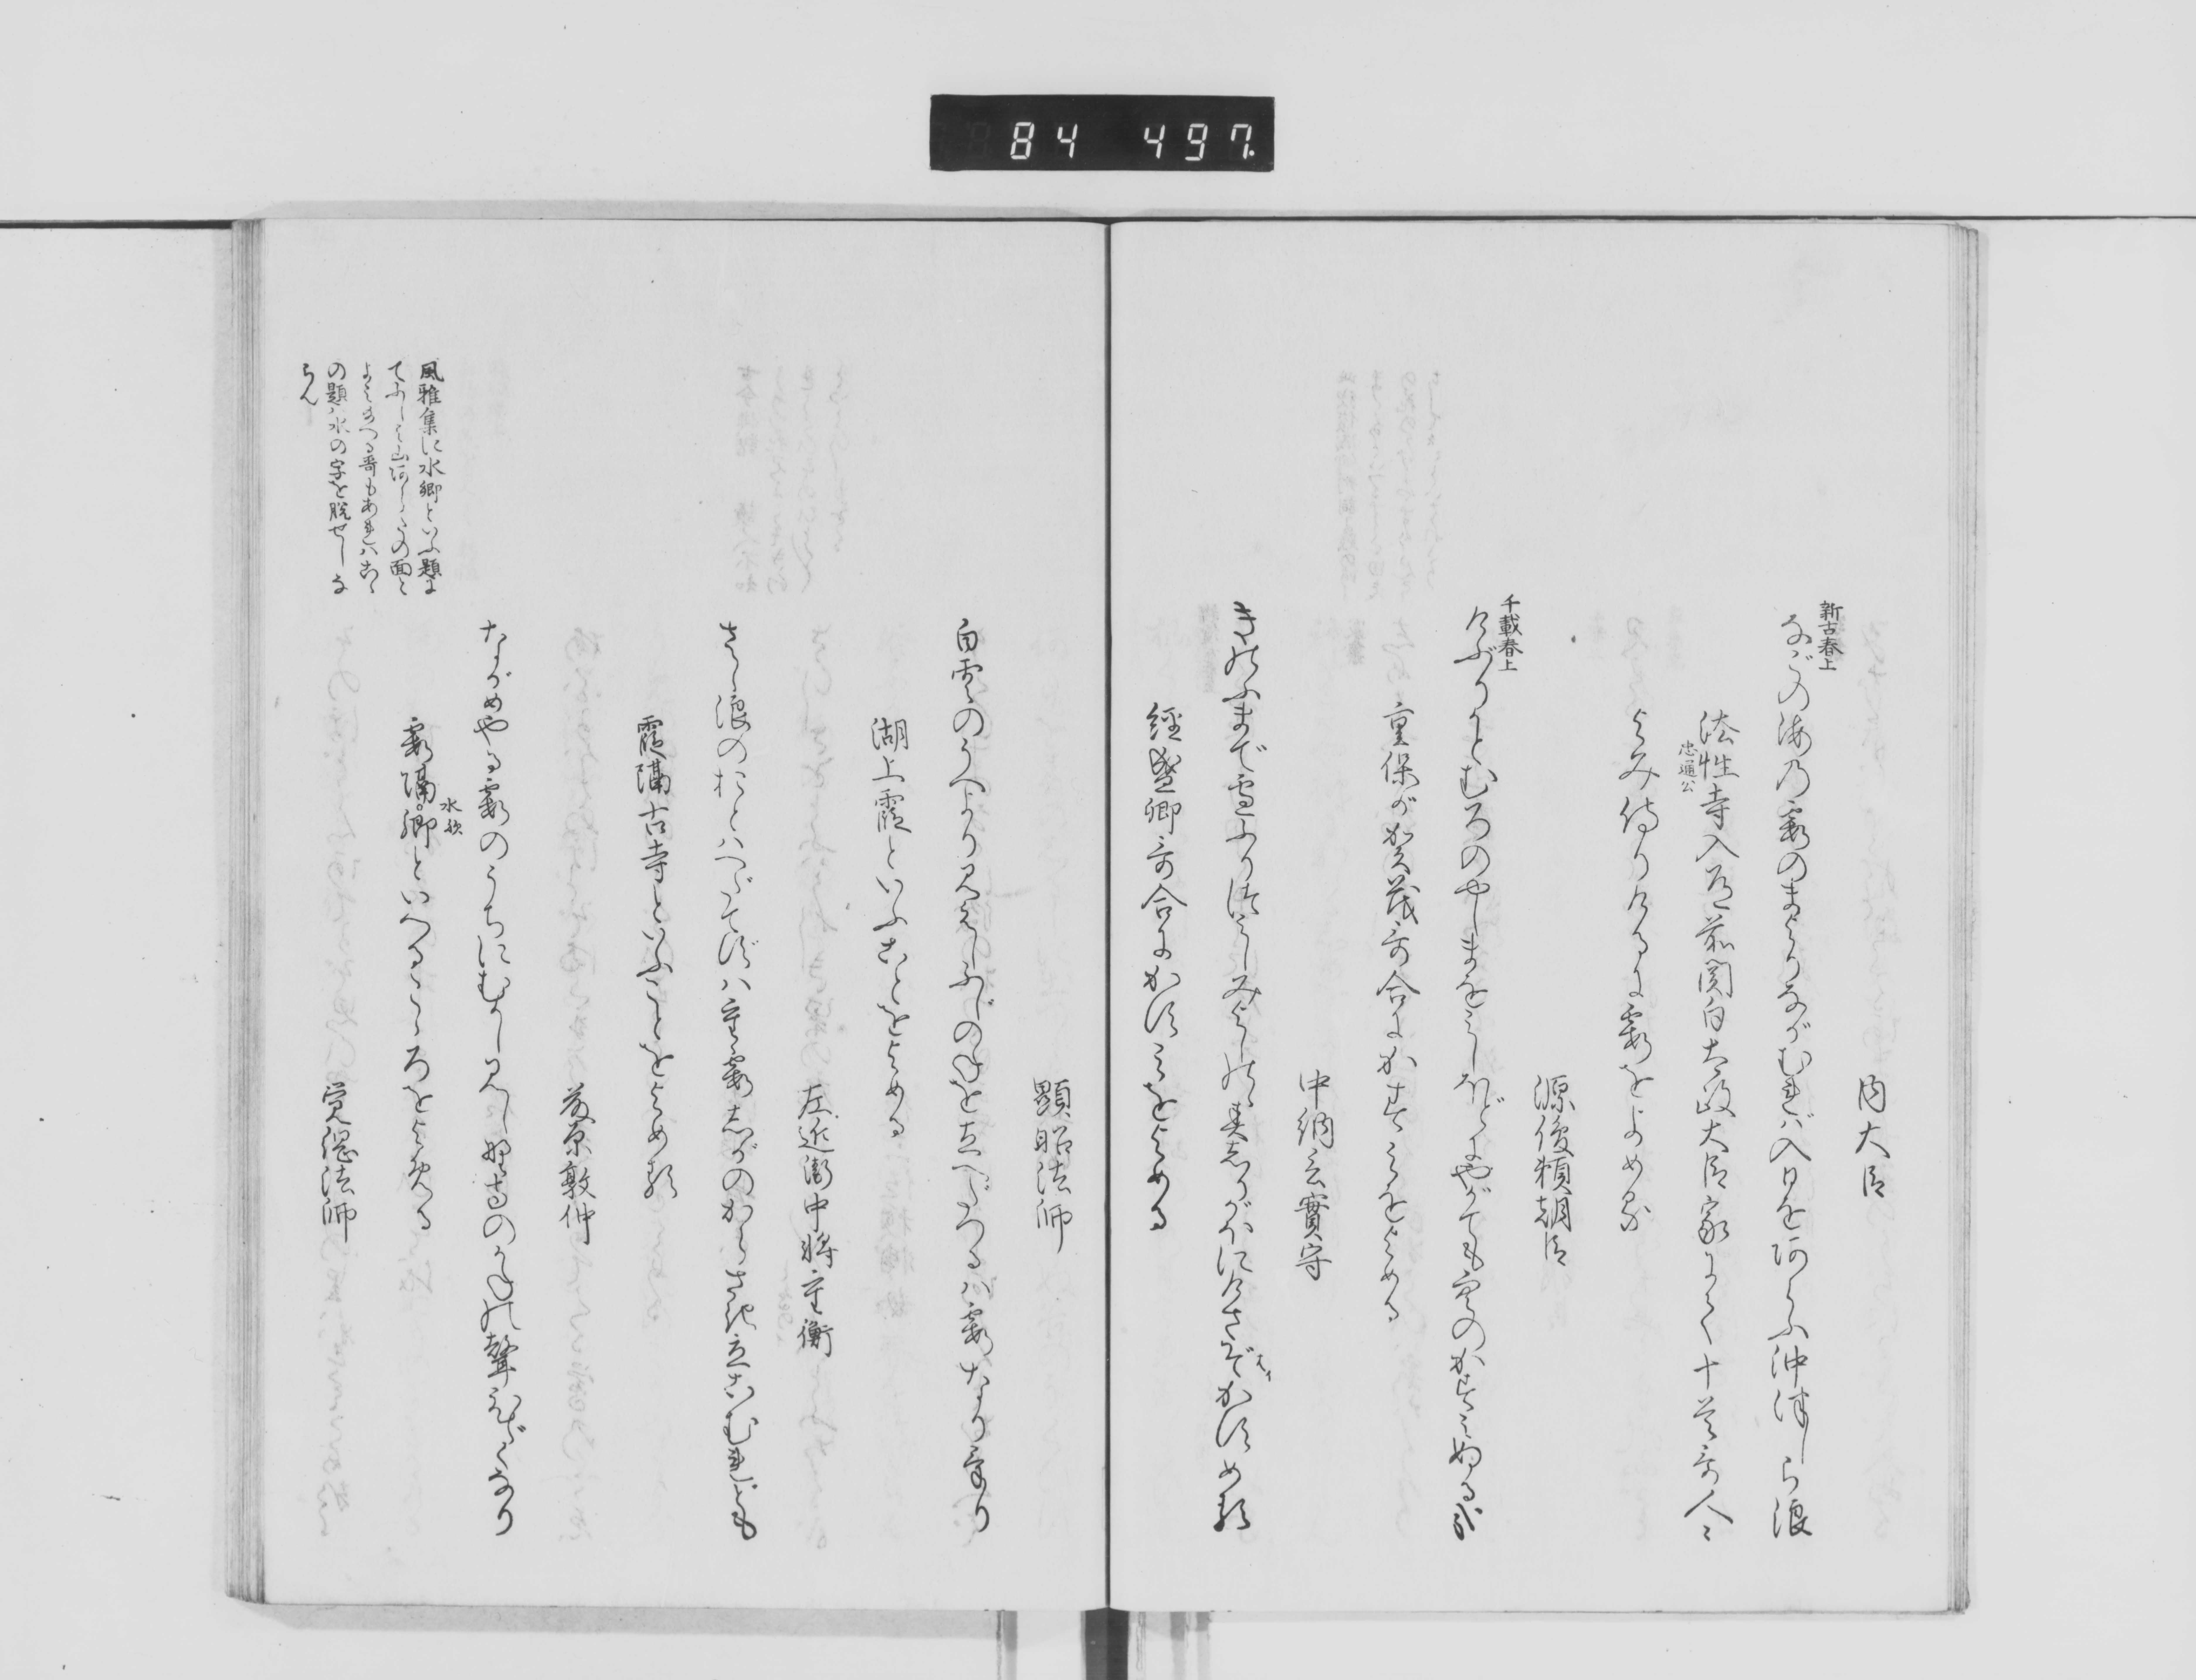 84 497.
内大臣
新古春上
なごの海乃霞のまよりながむれば入日をあらふ沖津しら浪
法性寺入道前関白太政大臣家にて十首哥人々
忠通公
よみ侍りけるに霞をよめる
源俊頼朝臣
千載春上
けぶりかとむろのやしまをみしほどにやがても空のかすみぬる哉
重保が賀茂哥合にかすみをよめる
中納言實守
きのふまで雪ふりつみしみよしのゝ春しりがほにけさぞかすめる
はイ
経盛卿哥合にかすみをよめる
顕昭法師
白雲のうへより見えしふじのねを立へだつるは霞なりけり
湖上霞といふことをよめる
左近衛中将重衡
さゝ浪のおとはへだてずいく重霞しがのからさき立こむれども
霞隔古寺といふことをよめる
藤原敦仲
ながめやる霞のうちにむかし見し野寺のかねの聲ひゞくなり
霞隔郷といへるこゝろをよめる
水歟
覚綱法師
風雅集に水郷といふ題に
の題は水の字を脱せしな
らん